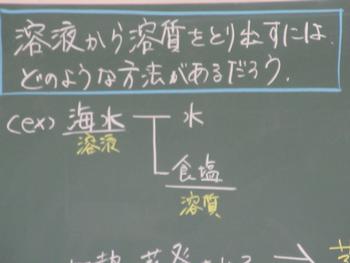 溶液から溶質をとり出すには、
どのような方法があるだろう。
(ex) 海水 水
溶液
食塩
溶質